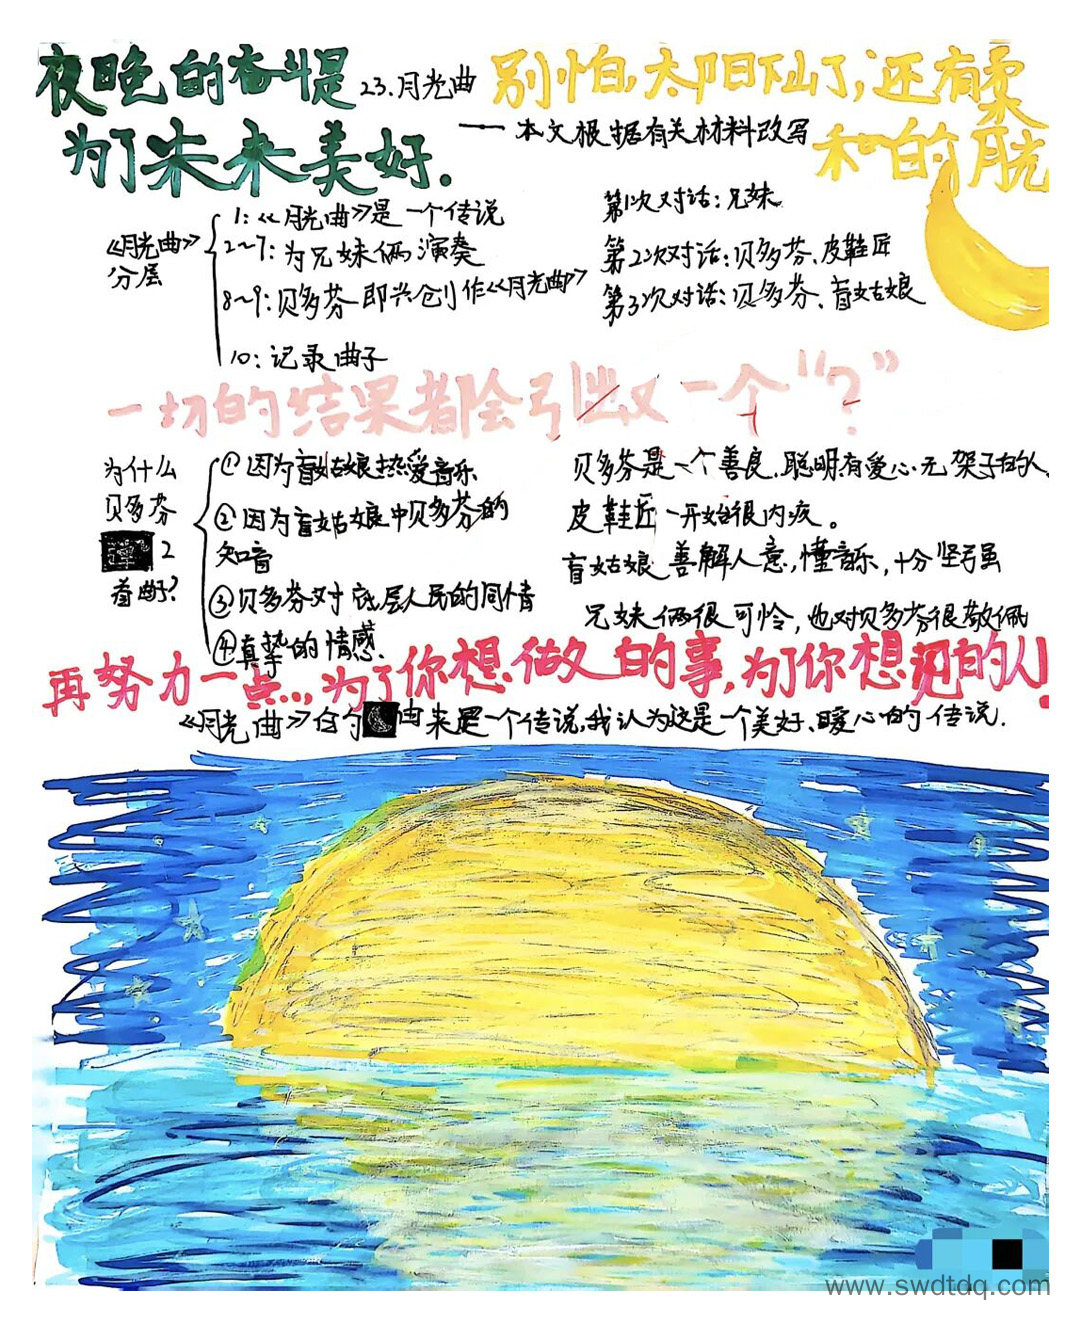 夜晚的奋斗是
为了未来美好.
23.月光曲
——本文根据有关材料改写
别怕,太阳下山了,还有柔
和的月光
《月光曲》
分层
1:《月光曲》是一个传说
2~7:为兄妹俩演奏
8~9:贝多芬即兴创作《月光曲》
10:记录曲子
第1次对话:兄妹
第2次对话:贝多芬、皮鞋匠
第3次对话:贝多芬、盲姑娘
一切的结果都会引出又一个“?”
为什么
贝多芬
弹2
首曲子?
①因为盲姑娘热爱音乐
②因为盲姑娘中贝多芬的
知音
③贝多芬对底层人民的同情
④真挚的情感.
贝多芬是一个善良.聪明.有爱心.无架子的人.
皮鞋匠一开始很内疚。
盲姑娘善解人意,懂音乐,十分坚强
兄妹俩很可怜,也对贝多芬很敬佩
再努力一点...,为了你想做的事,为了你想见的人!
《月光曲》的由来是一个传说,我认为这是一个美好、暖心的传说.
www.swdtdq.com